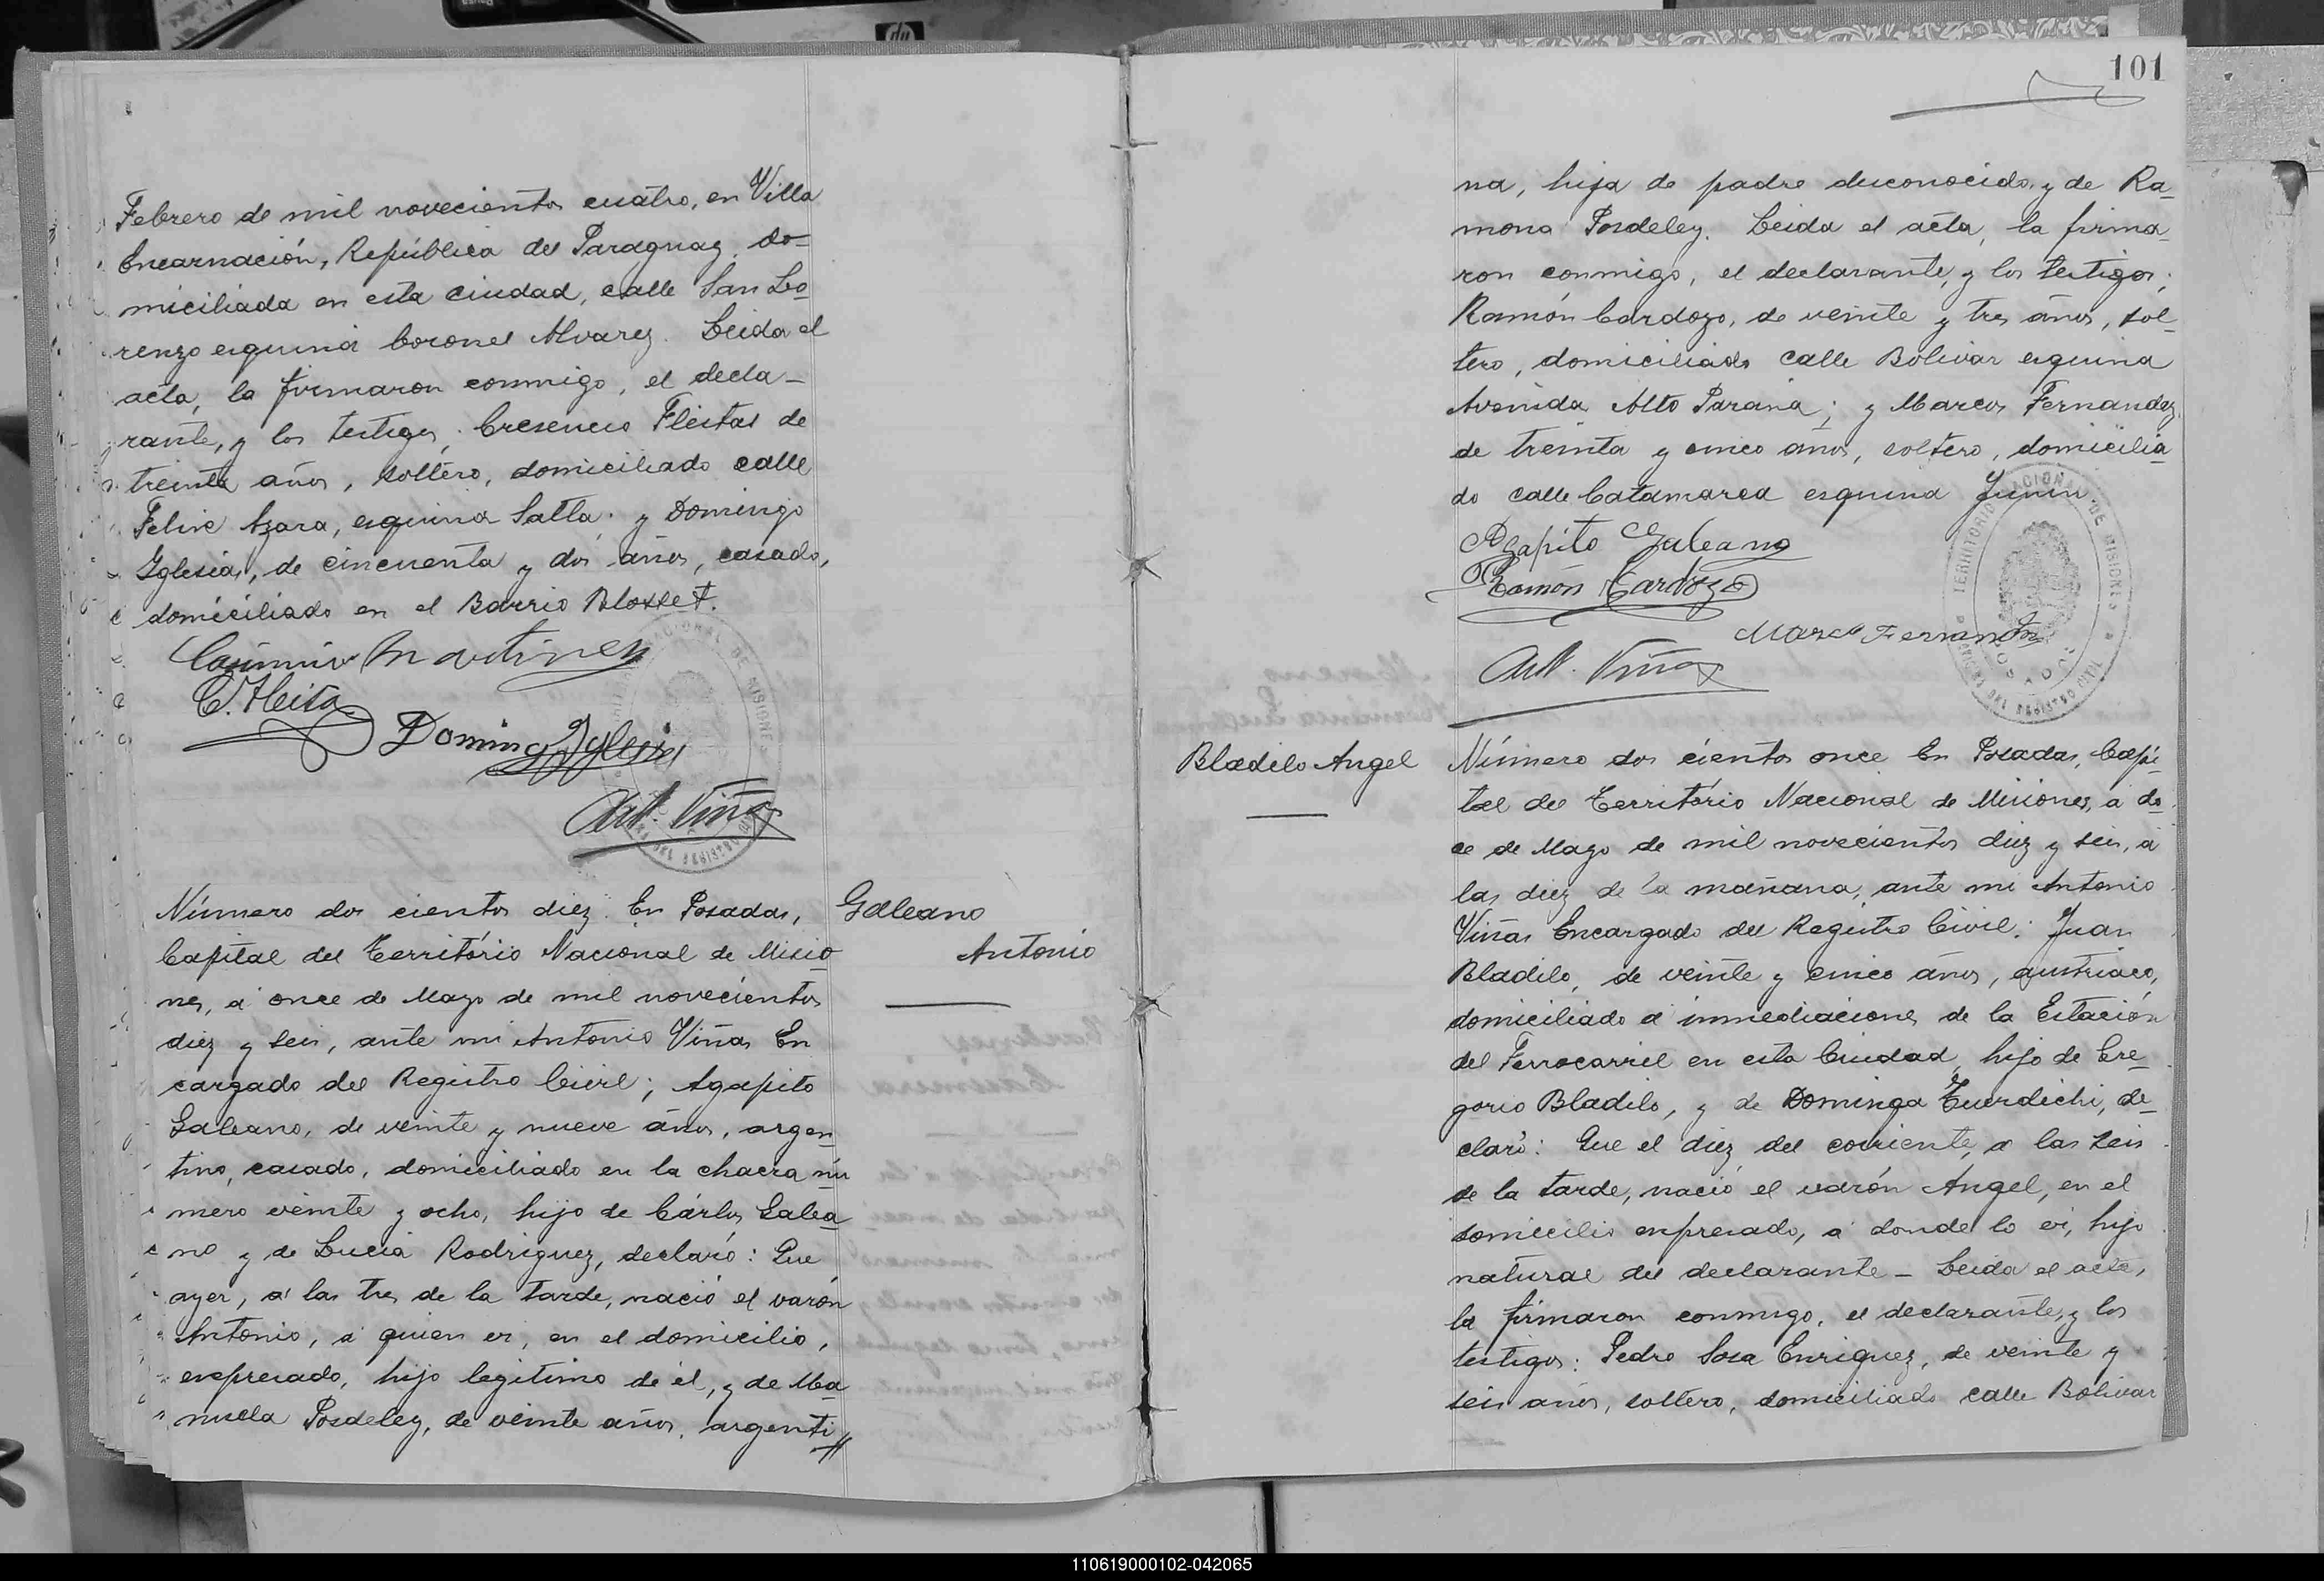 Febrero de mil novecientos cuatro, en Villa
Encarnación, República del Paraguay, do-
miciliada en esta ciudad, calle San Lo-
renzo esquina Coronel Alvarez. Leida el
acta, la firmaron conmigo, el decla-
rante, y los testigos; Cresencio Fleitas de
treinta años, soltero, domiciliado calle
Felix Azara, esquina Salta; y Domingo
Iglesias, de cincuenta y dos años, casado,
domiciliado en el Barrio Blosset.
Casimiro Martinez
C. Fleita
Domingo Iglesias
Ant. Viñas
Número dos cientos diez. En Posadas,
Capital del Território Nacional de Misio-
nes, á once de Mayo de mil novecientos
diez y seis, ante mi Antonio Viñas En
cargado del Registro Civil; Agapito
Galeano, de veinte y nueve años, argen-
tino, casado, domiciliado en la chacra nú-
mero veinte y ocho, hijo de Cárlos Galea-
no y de Lucia Rodriguez, declaró: Que
ayer, á las tres de la tarde, nació el varón
Antonio, á quien ví, en el domicilio,
expresado, hijo legitimo de él, y de Ma
nuela Posdeley, de veinte años, argenti-
Galeano
Antonio
101
na, hija de padre desconocido, y de Ra-
mona Posdeley. Leida el acta, la firma-
ron conmigo, el declarante, y los testigos;
Ramón Cardozo, de veinte y tres años, sol-
tero, domiciliado calle Bolivar esquina
Avenida Alto Paraná; y Marcos Fernandez,
de treinta y cinco años, soltero, domicilia-
do calle Catamarca esquina Junin.
Agapito Galeano
Ramón Cardozo
Marcos Fernandez
Ant. Viñas
TERRITORIO NACIONAL DE MISIONES
OFICINA DEL REGISTRO CIVIL
POSADAS
Bladilo Angel
Número dos cientos once En Posadas, Capi-
tal del Território Nacional de Misiones, á do-
ce de Mayo de mil novecientos diez y seis, á
las diez de la mañana, ante mi Antonio
Viñas Encargado del Registro Civil; Juan
Bladilo, de veinte y cinco años, austriaco,
domiciliado á inmediaciones de la Estación
del Ferrocarril en esta Ciudad, hijo de Gre-
gorio Bladilo, y de Dominga, de-
claró: Que el diez del corriente, á las seis
de la tarde, nació el varón Angel, en el
domicilio expresado, á donde lo ví, hijo
natural del declarante - Leida el acta,
la firmaron conmigo, el declarante, y los
testigos: Pedro Sosa Enriquez, de veinte y
seis años, soltero, domiciliado calle Bolivar
110619000102-042065